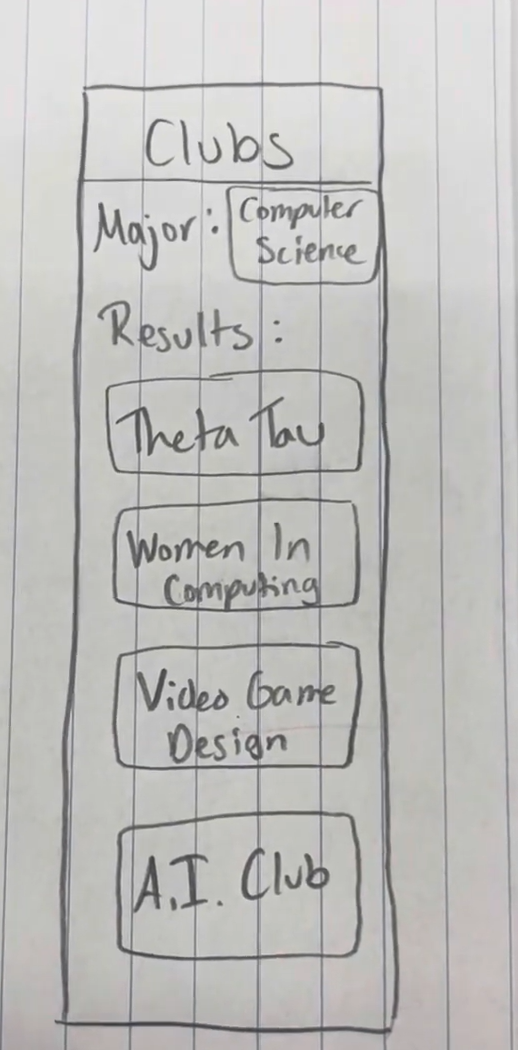 Clubs
Major: Computer
Science
Results:
Theta Tau
Women In
Computing
Video Game
Design
A.I. Club